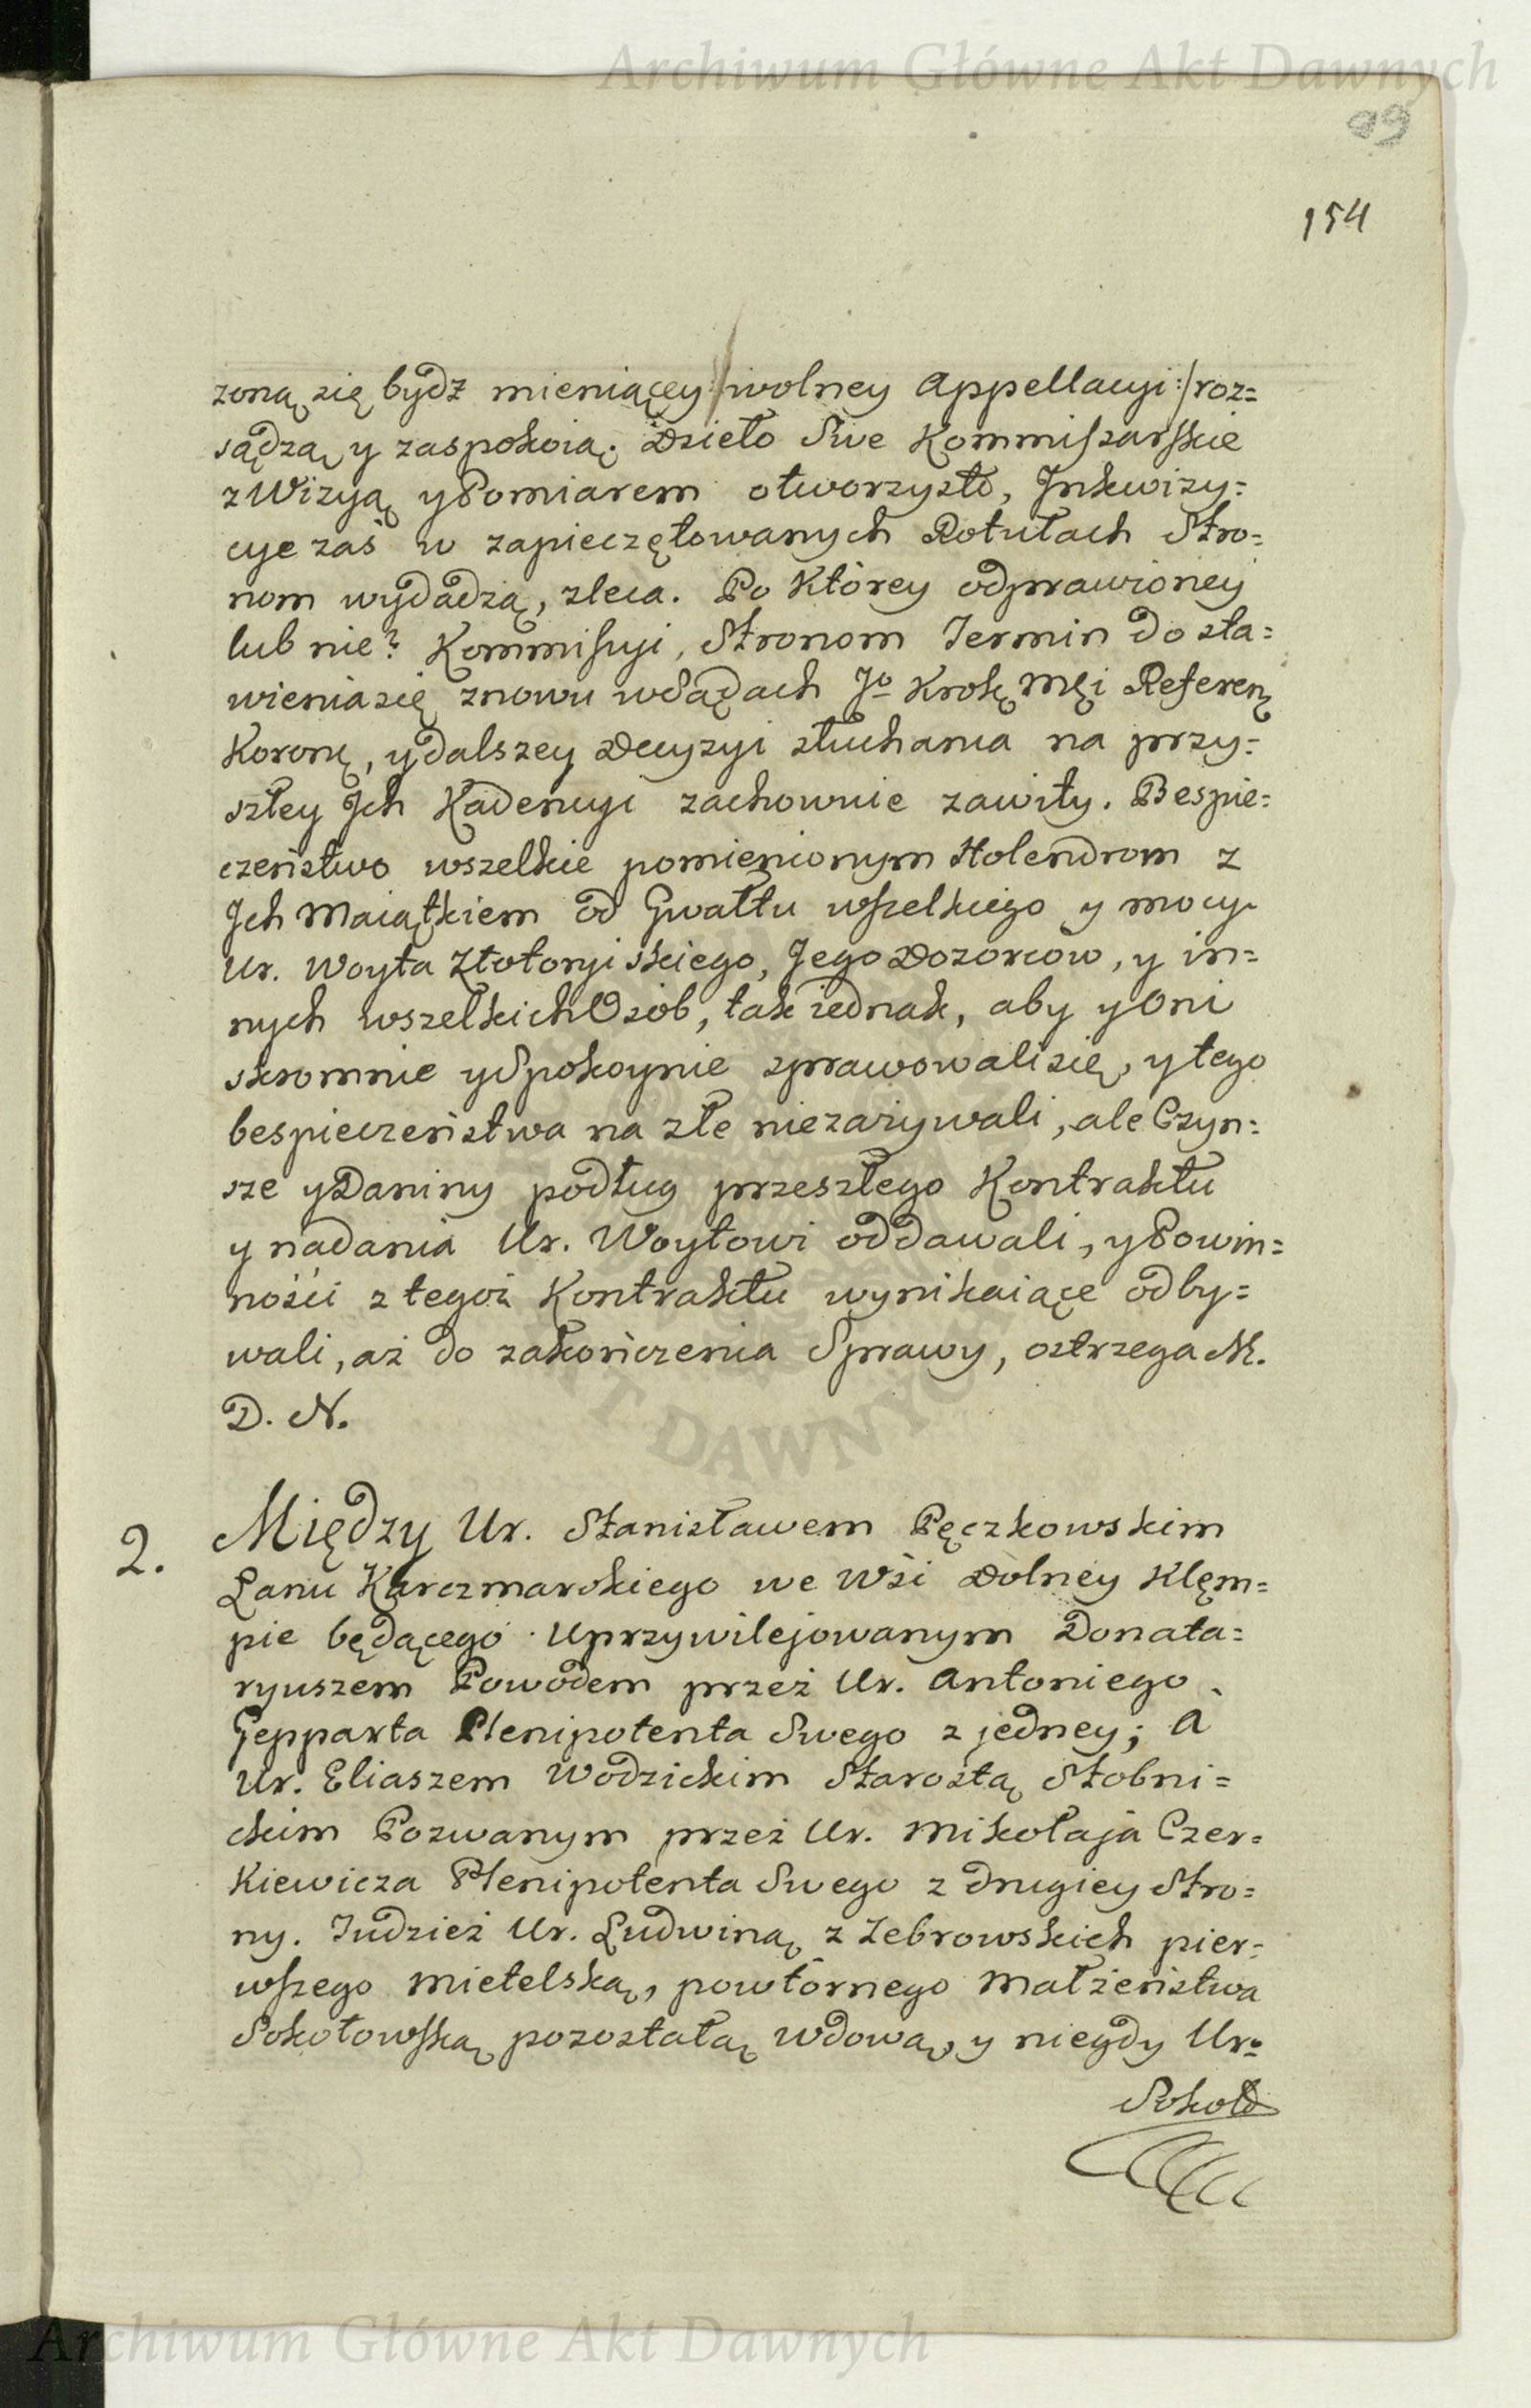 Archiwum Główne Akt Dawnych
99
154
zoną się bydź mieniącey /: wolney Appellacyi :/ roz=
sądzą, y zaspokoią. Dzieło Swe Kommissarskie
z Wizyą y Pomiarem otworzysto, Inkwizy=
cye zaś w zapieczętowanych Rotułach Stro=
nom wydadzą, zleca. Po Którey odprawioney
lub nie? Kommissyi, Stronom Termin do sta=
wienia się znowu w Sądach Jo Krolę Mći Referenę
Koronę, y dalszey Decyzyi słuchania na przy=
szłey Ich Kadencyi zachownie zawity. Bespie=
czeństwo wszelkie pomienionym Holendrom z
Ich Maiątkiem od Gwałtu wszelkiego y mocy
Ur. Woyta Złotoryiskiego, Jego Dozorców, y in=
nych wszelkich Osób, tak iednak, aby y Oni
skromnie y Spokoynie sprawowali się, y tego
bespieczeństwa na złe niezażywali, ale Czyn=
sze y Daniny podług przeszłego Kontraktu
y nadania Ur. Woytowi oddawali, y Powin=
ności z tegoż Kontraktu wynikaiące odby=
wali, aż do zakończenia Sprawy, ostrzega M.
D. N.
2. Między Ur. Stanisławem Pęczkowskim
Łanu Karczmarskiego we Wsi Dolney Klęm=
pie będącego Uprzywilejowanym Donata=
ryuszem Powodem przez Ur. Antoniego
Gepparta Plenipotenta Swego z jedney; A
Ur. Eliaszem Wodzickim Starostą Stobni=
ckim Pozwanym przez Ur. Mikołaja Czer=
Kiewicza Plenipotenta Swego z drugiey Stro=
ny. Tudzież Ur. Ludwiną z Zebrowskich pier=
wszego Mietelską, powtórnego Małżeństwa
Sokołowską pozostałą Wdową, y niegdy Ur=
Sokoło
Archiwum Główne Akt Dawnych